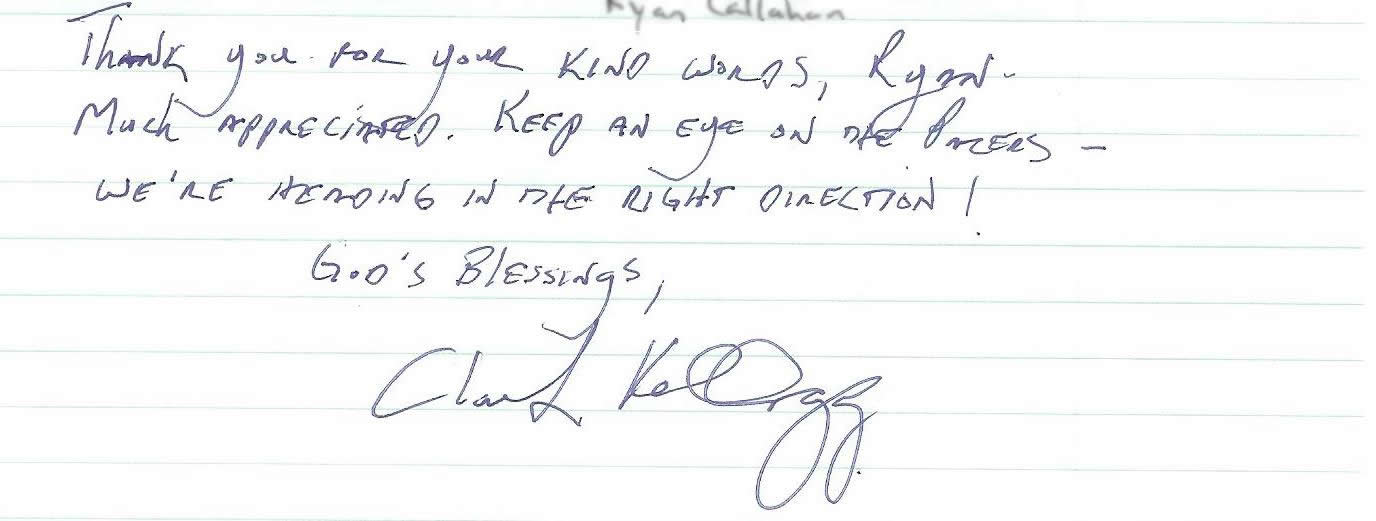 Ryan Callahan
Thank you for your kind words, Ryan-
Much appreciated. Keep an eye on the Pacers –
we're heading in the right direction!
God's Blessings,
Clark Kellogg